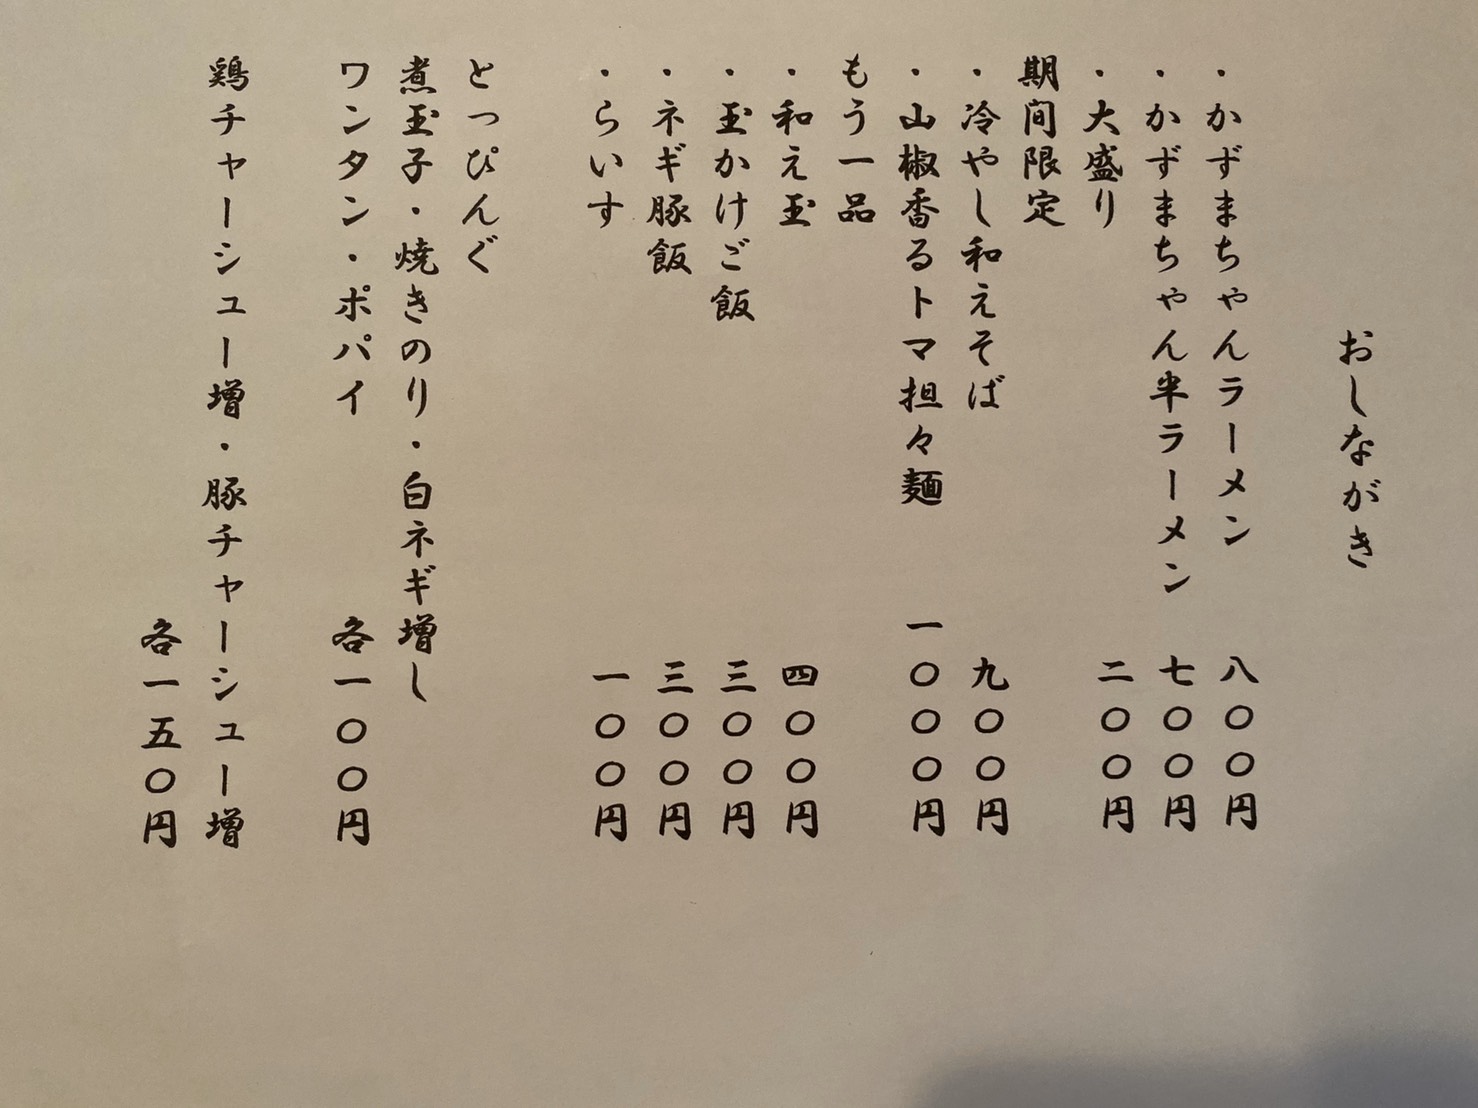 おしながき
・かずまちゃんラーメン 八〇〇円
・かずまちゃん半ラーメン 七〇〇円
・大盛り 二〇〇円
期間限定
・冷やし和えそば 九〇〇円
・山椒香るトマト担々麺 一〇〇〇円
もう一品
・和え玉 四〇〇円
・玉かけご飯 三〇〇円
・ネギ豚飯 三〇〇円
・らいす 一〇〇円
とっぴんぐ
煮玉子・焼きのり・白ネギ増し
ワンタン・ポパイ 各一〇〇円
鶏チャーシュー増・豚チャーシュー増
各一五〇円